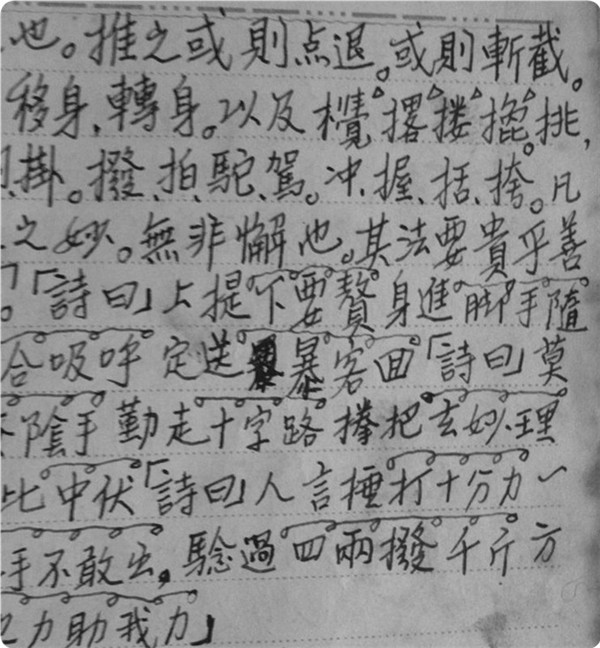 也。推之或則点退。或則斬截。
移身、轉身。以及攪撂搂搃。挑,
掛。撥、拍、駝、駕。冲、握、括、挎。凡
之妙。無非懈也。其法要貴乎善
。「詩曰」上提下要贅身進脚手隨
合吸呼定送暴客回「詩曰」莫
陰手勤走十字路捧把玄妙理
比中伏「詩曰」人言捶打十分力一
手不敢出。驗過四兩撥千斤方
力助我力」